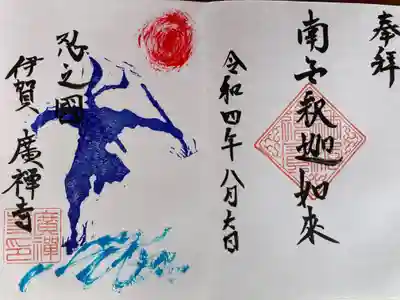 奉拝
南無釈迦如來
令和四年八月六日
忍之國
伊賀 廣禅寺